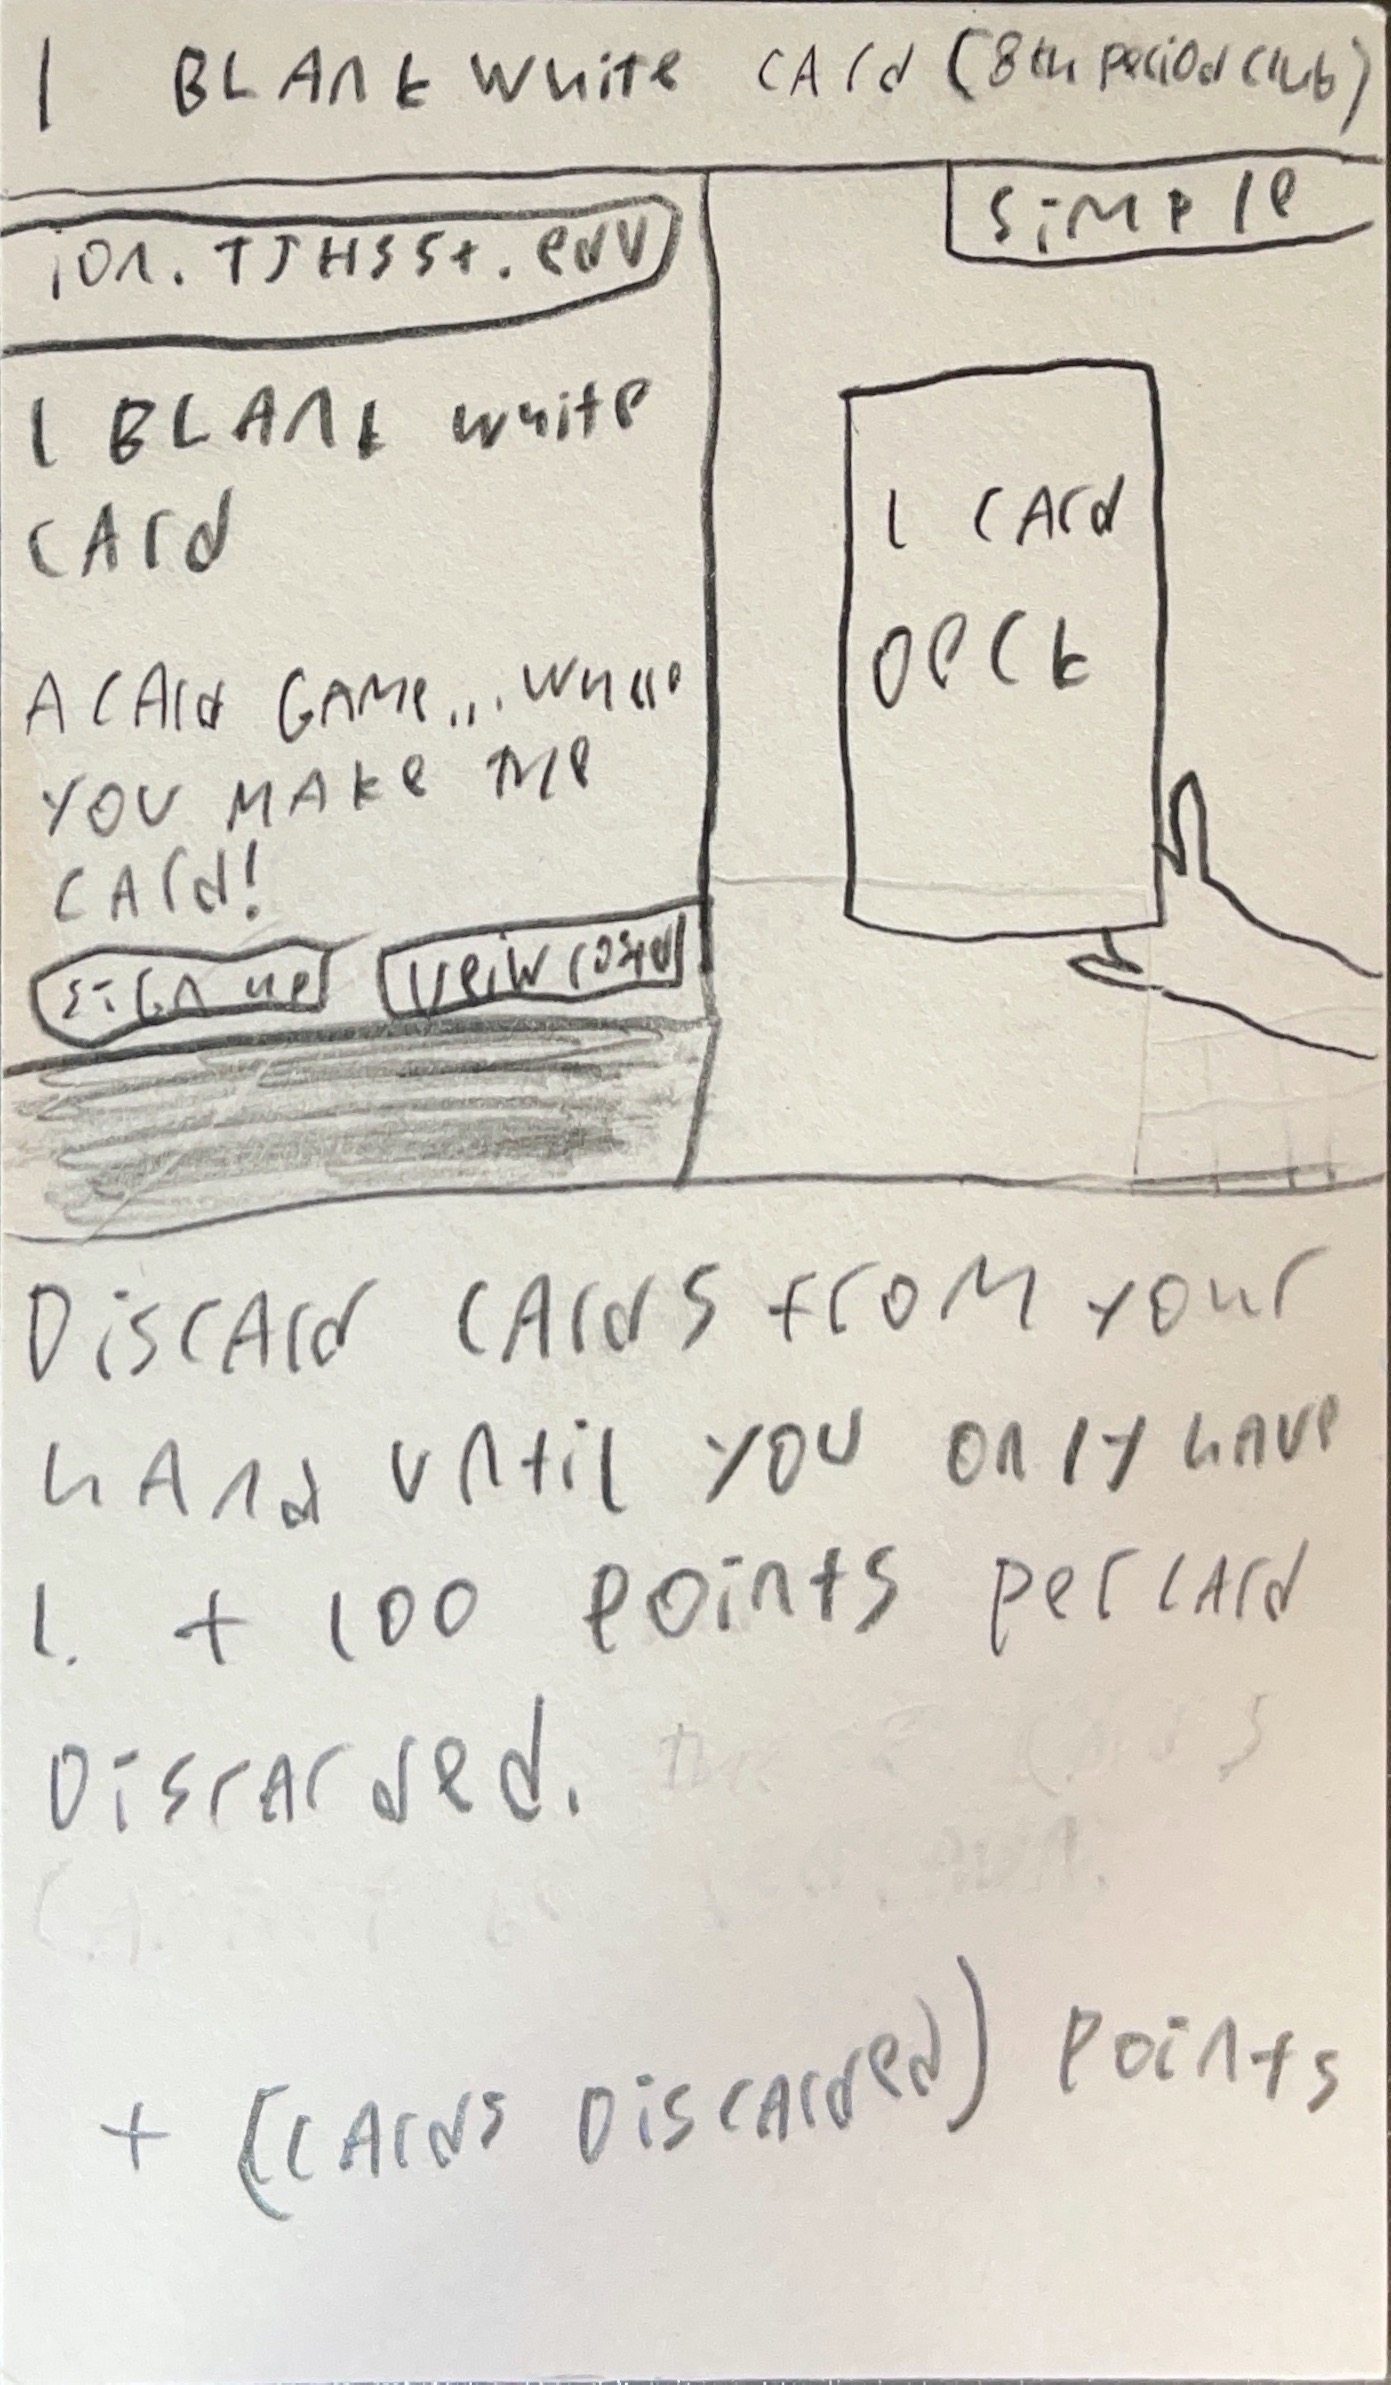 1 BLANK white CARD (8th period club)
ion.TJHSSt.edu
1 BLANK white
CARD
A CARD GAME... where
YOU MAKE THE
CARD!
SiGn up
VeiW roster
SiMPle
1 CARD
DeCk
DiscARD CARDS from your
hAnd until you only have
1. + 100 points per CARD
DiscArded.
+ (CARDS DiscARded) Points